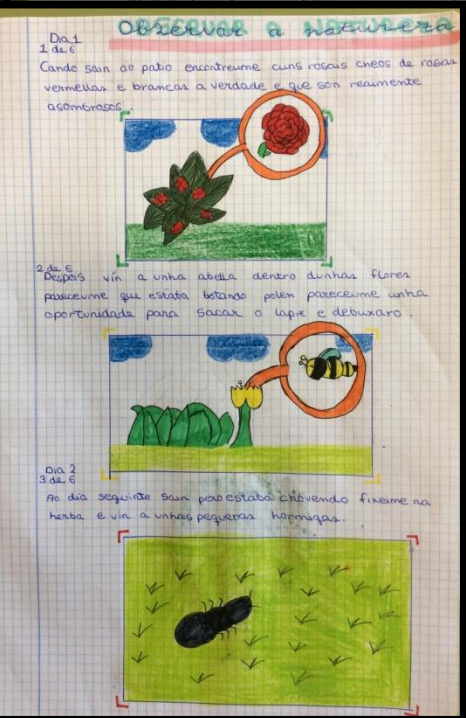 OBSERVAR A NATUREZA
Día 1
1 de 6
Cando sain ao patio encontreume cuns rosais cheos de rosas
vermellas e brancas a verdade e que son realmente
asombrosos.
2 de 6
Despois vín a unha abella dentro dunhas flores
pareceume que estaba botando polen pareceume unha
oportunidade para sacar o lapis e debuxaro.
Dia 2
3 de 6
Ao día seguinte sain pero estaba chovendo fixeime na
herba e vin a unhas pequenas hormigas.